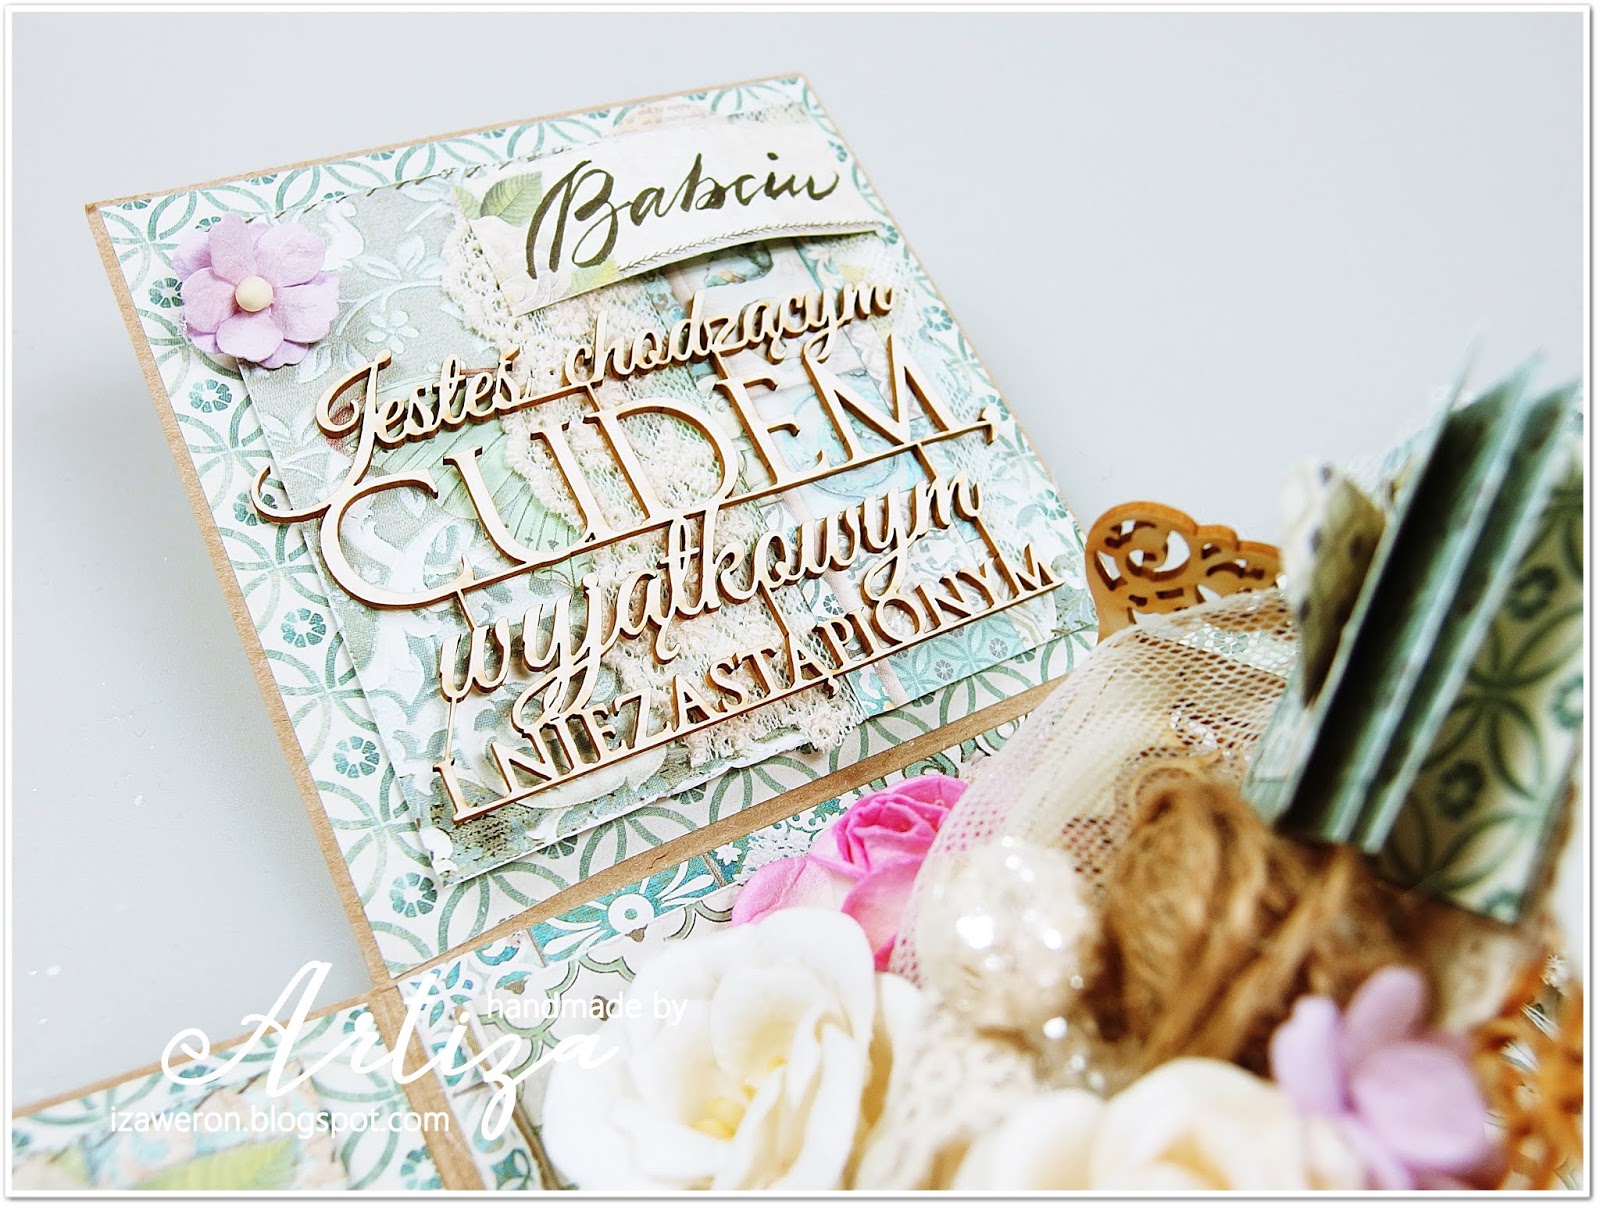 Babciu
Jesteś chodzącym
CUDEM,
wyjątkowym
I NIEZASTĄPIONYM
handmade by
Artiza
izaweron.blogspot.com